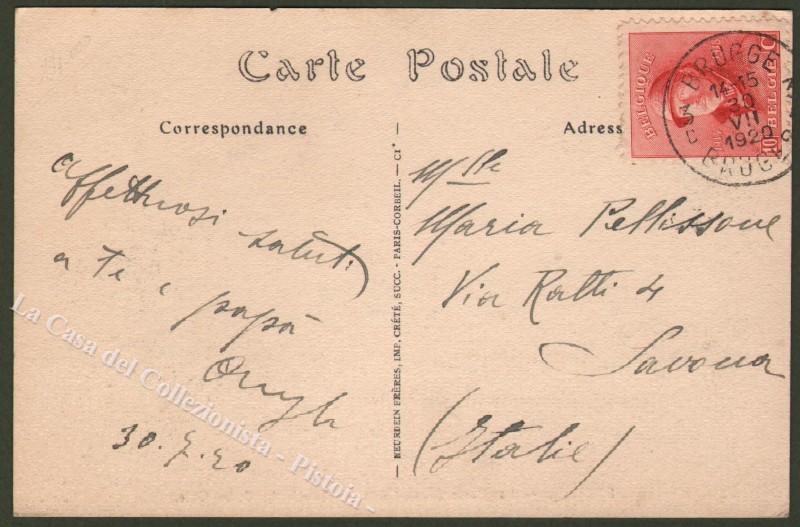 Carte Postale
Correspondance
Affettuosi saluti
a Te e papà
30.7.20
NEURDEIN FRÈRES, IMP. CRÉTÉ, SUCC. - PARIS-CORBEIL. — Cie
Adress
BELGIQUE
BELGIË
10 C
BRUGGE
14-15
30
VII
1920
3 D
Mlle
Maria Pellissone
Via Ratti 4
Savona
(Italie)
La Casa del Collezionista - Pistoia -